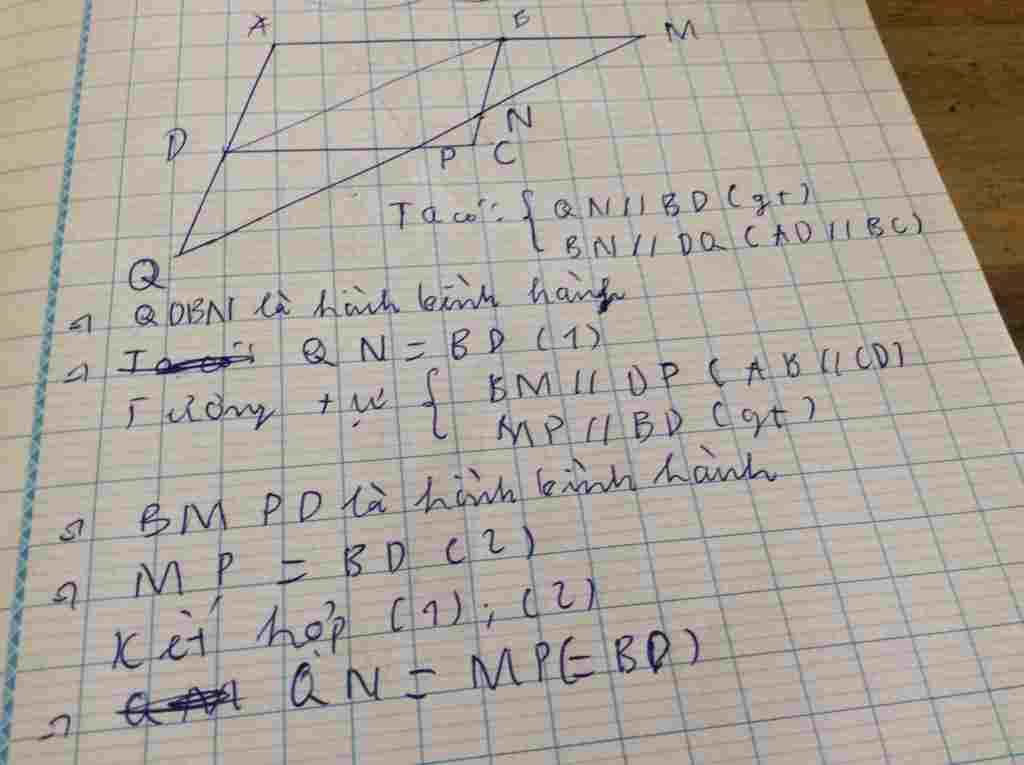 A B M
D N
P C
Q
Ta có: { QN // BD (gt)
BN // DQ (AD // BC)
=> QDBN là hình bình hành
=> QN = BD (1)
Tương tự { BM // DP (AB // CD)
MP // BD (gt)
=> BMPD là hình bình hành
=> MP = BD (2)
Kết hợp (1); (2)
=> QN = MP (= BD)